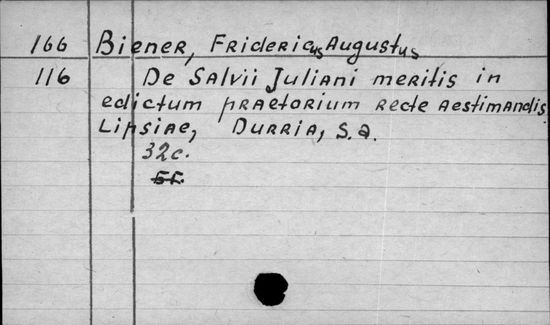 166 Biener, Fridericus Augustus
116 De Salvii Juliani meritis in
edictum praetorium recte aestimandis
Lipsiae, Durria, s.a.
32c.